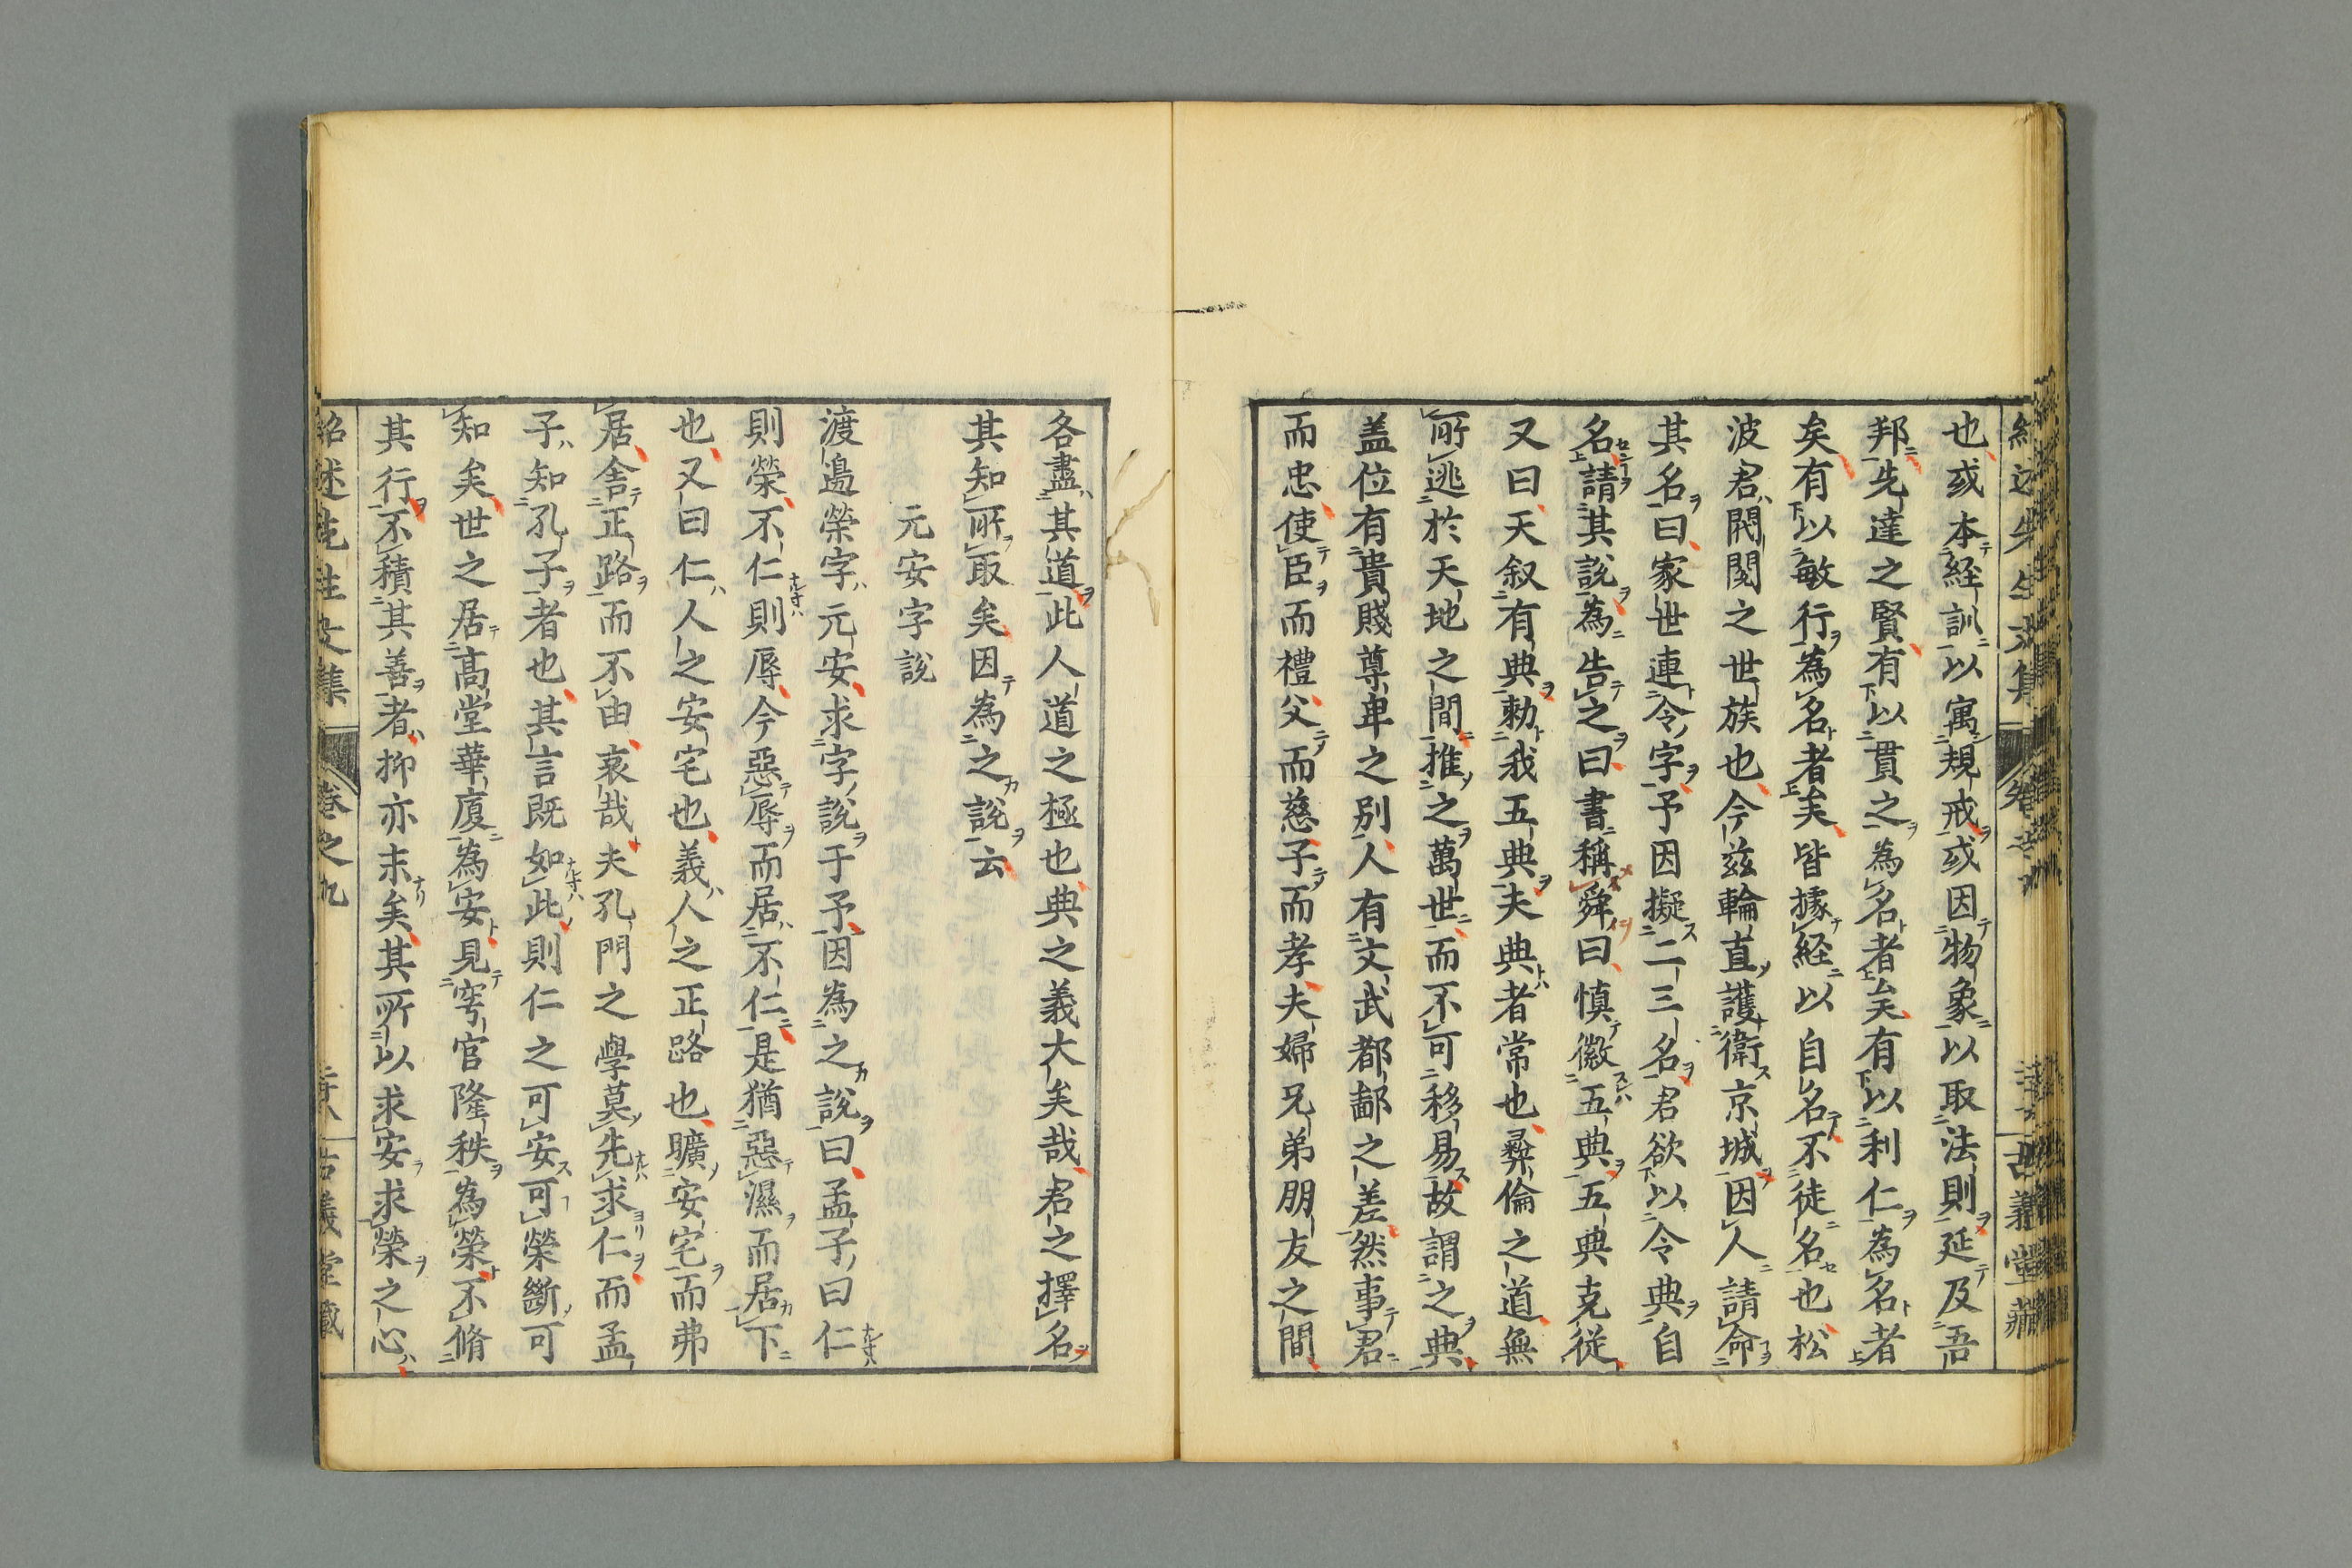 也或本経訓以寓規戒或因物象以取法則延及吾
邦先達之賢有以貫之為名者矣有以利仁為名者
矣有以敏行為名者矣皆據経以自名不徒名也松
波君閥閲之世族也今玆輪直護衛京城因人請命
其名曰家世連令字予因擬二三名君欲以令典自
名請其說為告之曰書稱舜曰慎徽五典五典克従
又曰天叙有典勅我五典夫典者常也彛倫之道無
所逃於天地之間推之萬世而不可移易故謂之典
盖位有貴賤尊卑之別人有文武都鄙之差然事君
而忠使臣而禮父而慈子而孝夫婦兄弟朋友之間
各盡其道此人道之極也典之義大矣哉君之擇名
其知所取矣因為之說云
元安字說
渡邉榮字元安求字說于予因為之說曰孟子曰仁
則榮不仁則辱今惡辱而居不仁是猶惡濕而居下
也又曰仁人之安宅也義人之正路也曠安宅而弗
居舎正路而不由哀哉夫孔門之學莫先求仁而孟
子知孔子者也其言既如此則仁之可安可榮斷可
知矣世之居高堂華廈為安見穹官隆秩為榮不脩
其行不積其善者抑亦末矣其所以求安求榮之心
紹述先生文集 卷之九 古義堂藏